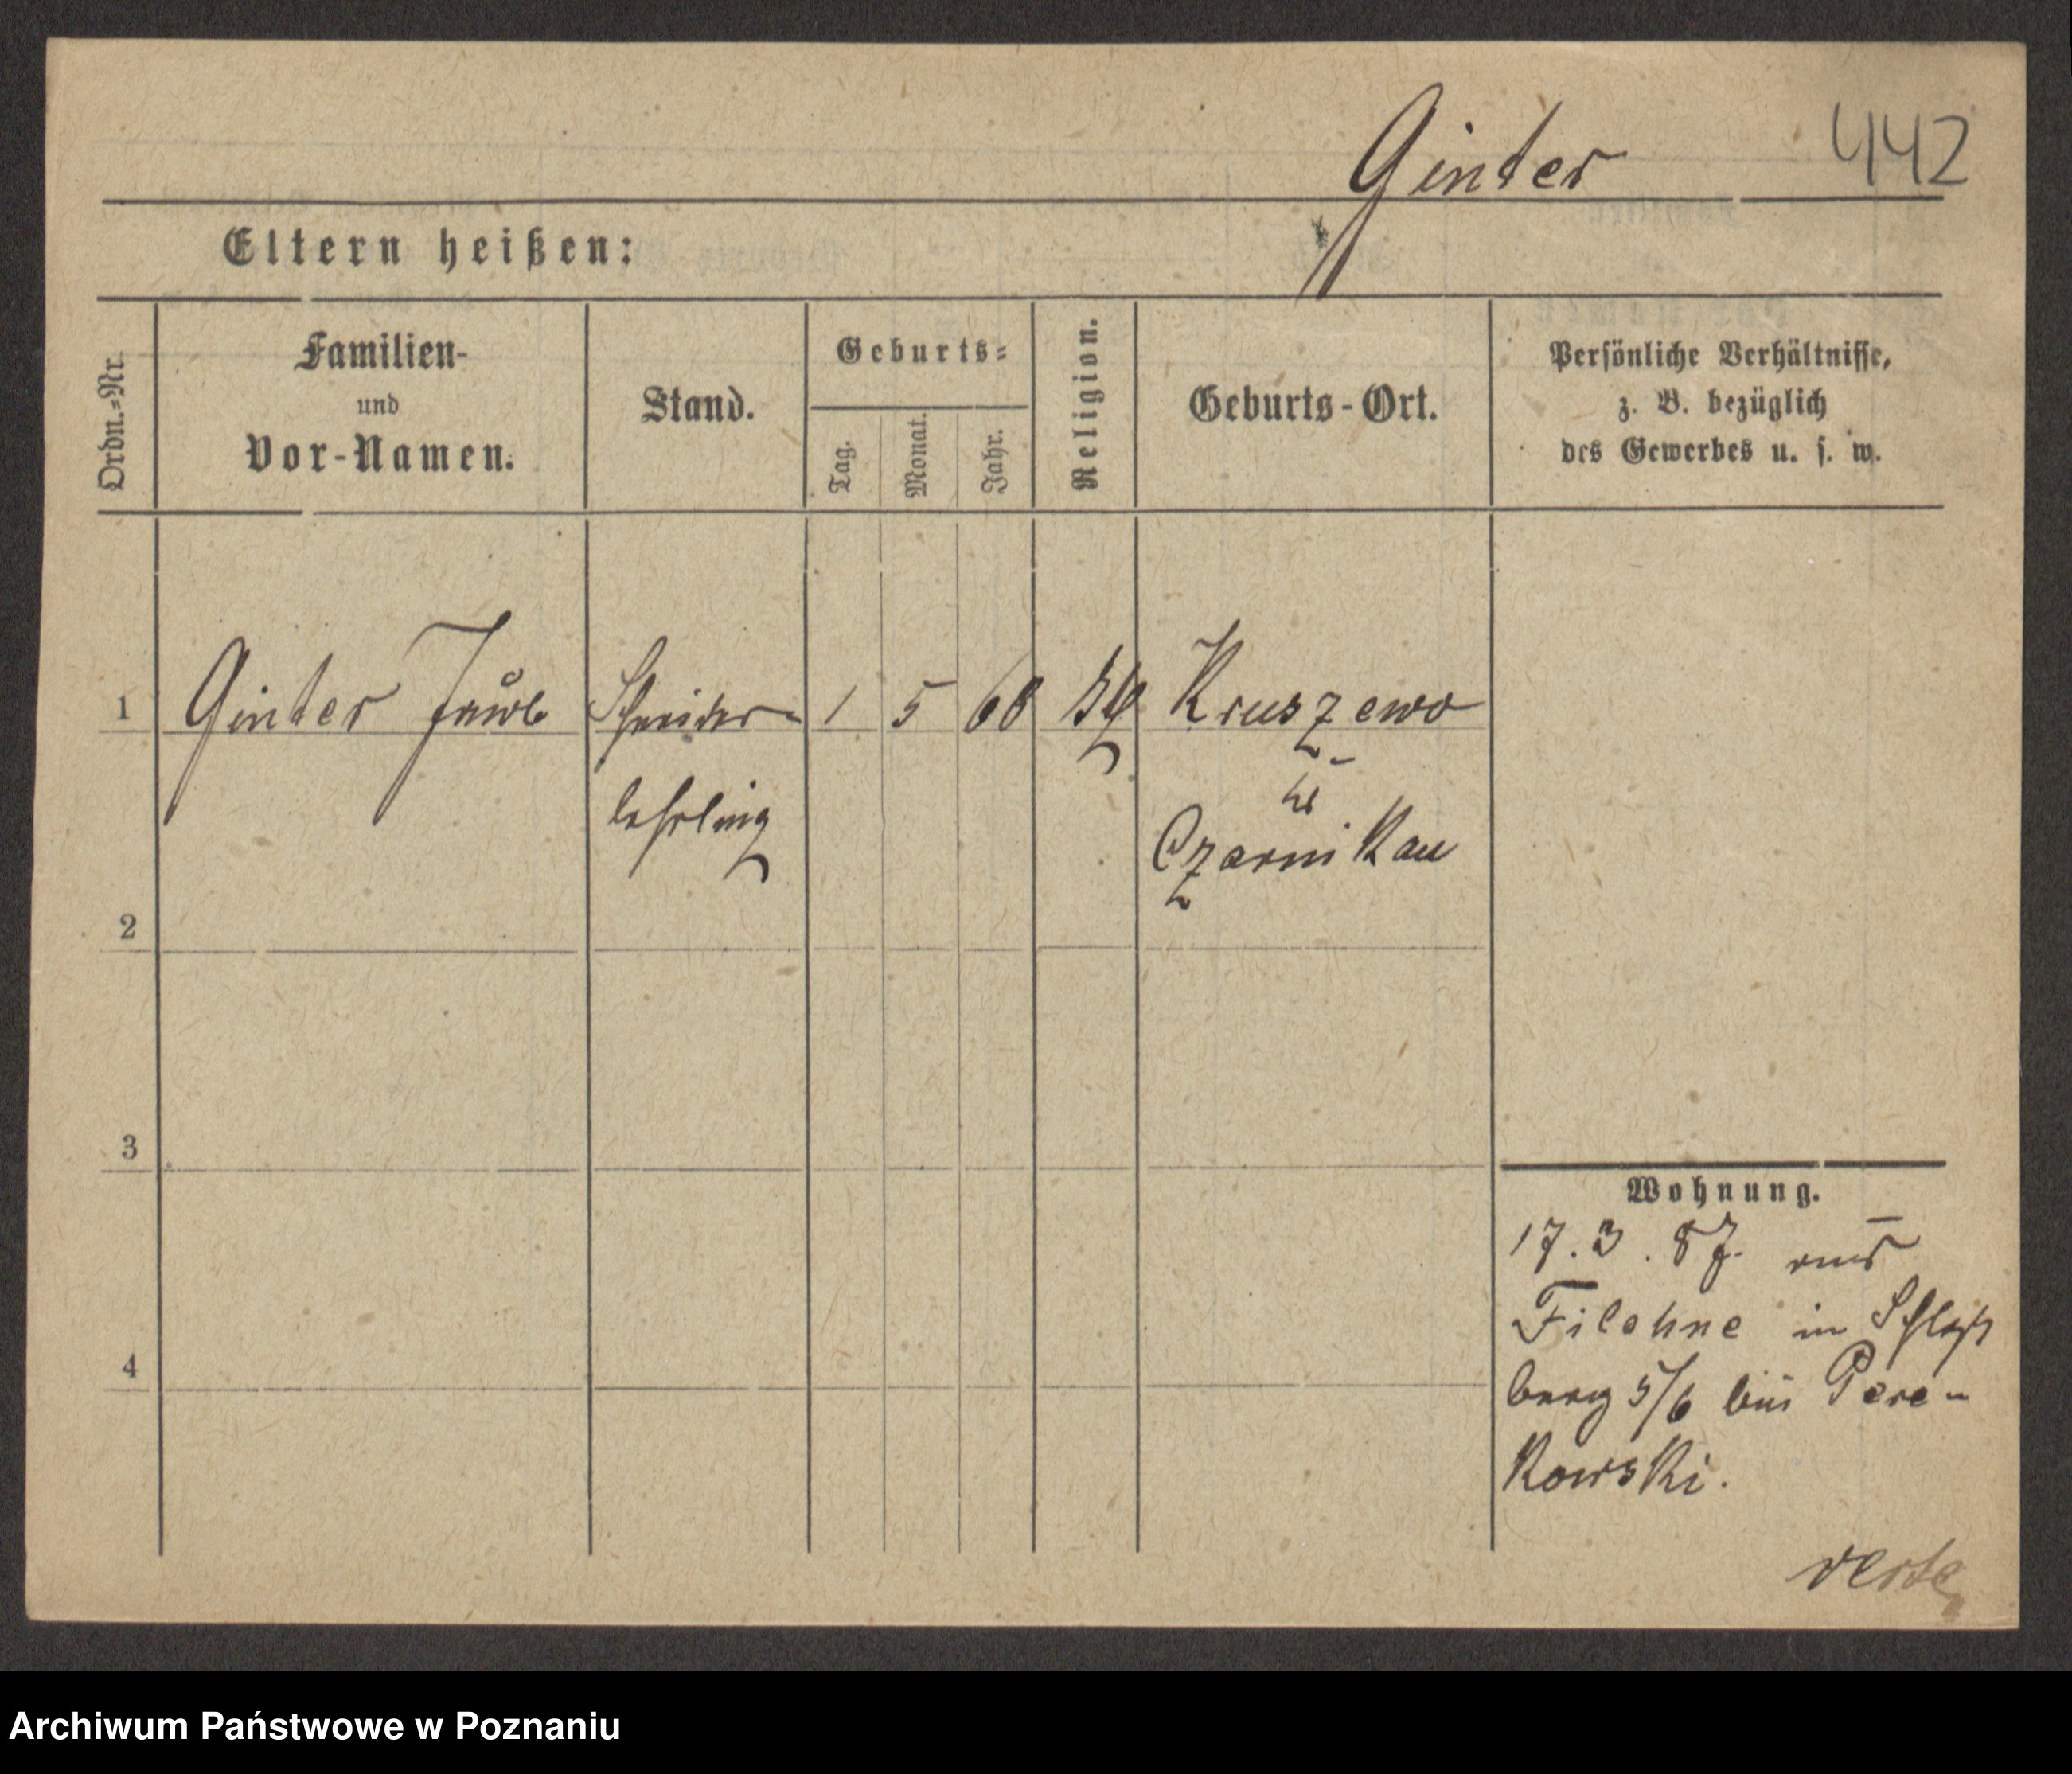 Ginter 442
Eltern heißen:
Ordn.-Nr.
Familien-
und
Vor-Namen.
Stand.
Geburts-
Tag.
Monat.
Jahr.
Religion.
Geburts-Ort.
Persönliche Verhältnisse,
z. B. bezüglich
des Gewerbes u. s. w.
1 Ginter Jakob Schneider- 1 5 68 Kruszewo
lehrling
Czarnikau
2
3
4
Wohnung.
17.3.87. aus
Filehne in Schloß
berg 5/6 bei Pere-
kowski.
verte
Archiwum Państwowe w Poznaniu